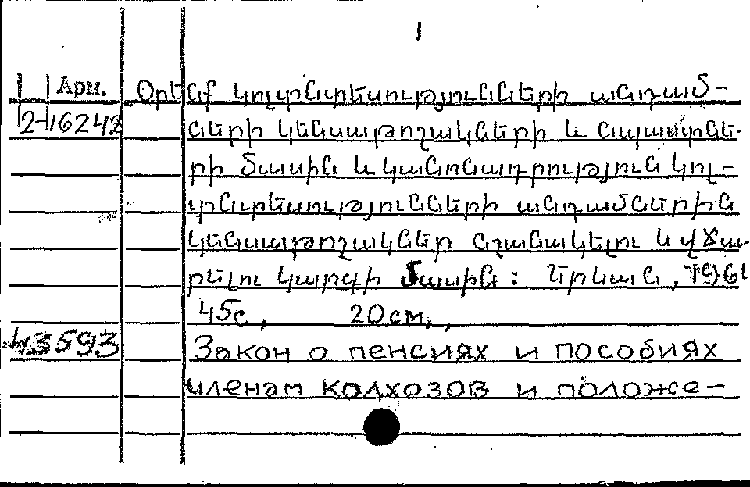 1
Арм. Օրենք կոլտնտեսությունների անդամ-
2-16242 ների կենսաթոշակների և նպաստնե-
րի մասին և կանոնադրություն կոլ-
տնտեսությունների անդամներին
կենսաթոշակներ նշանակելու և վճա-
րելու կարգի մասին: Երևան, 1961
45с, 20см.,
43593 Закон о пенсиях и пособиях
членам колхозов и положе-